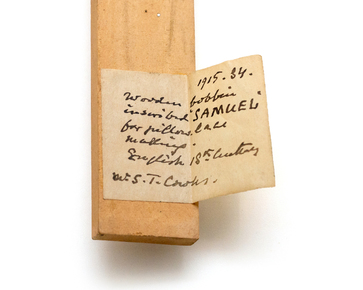 1915.34.
Wooden bobbin
inscribed "SAMUEL"
for pillow lace
making.
English 18th Century